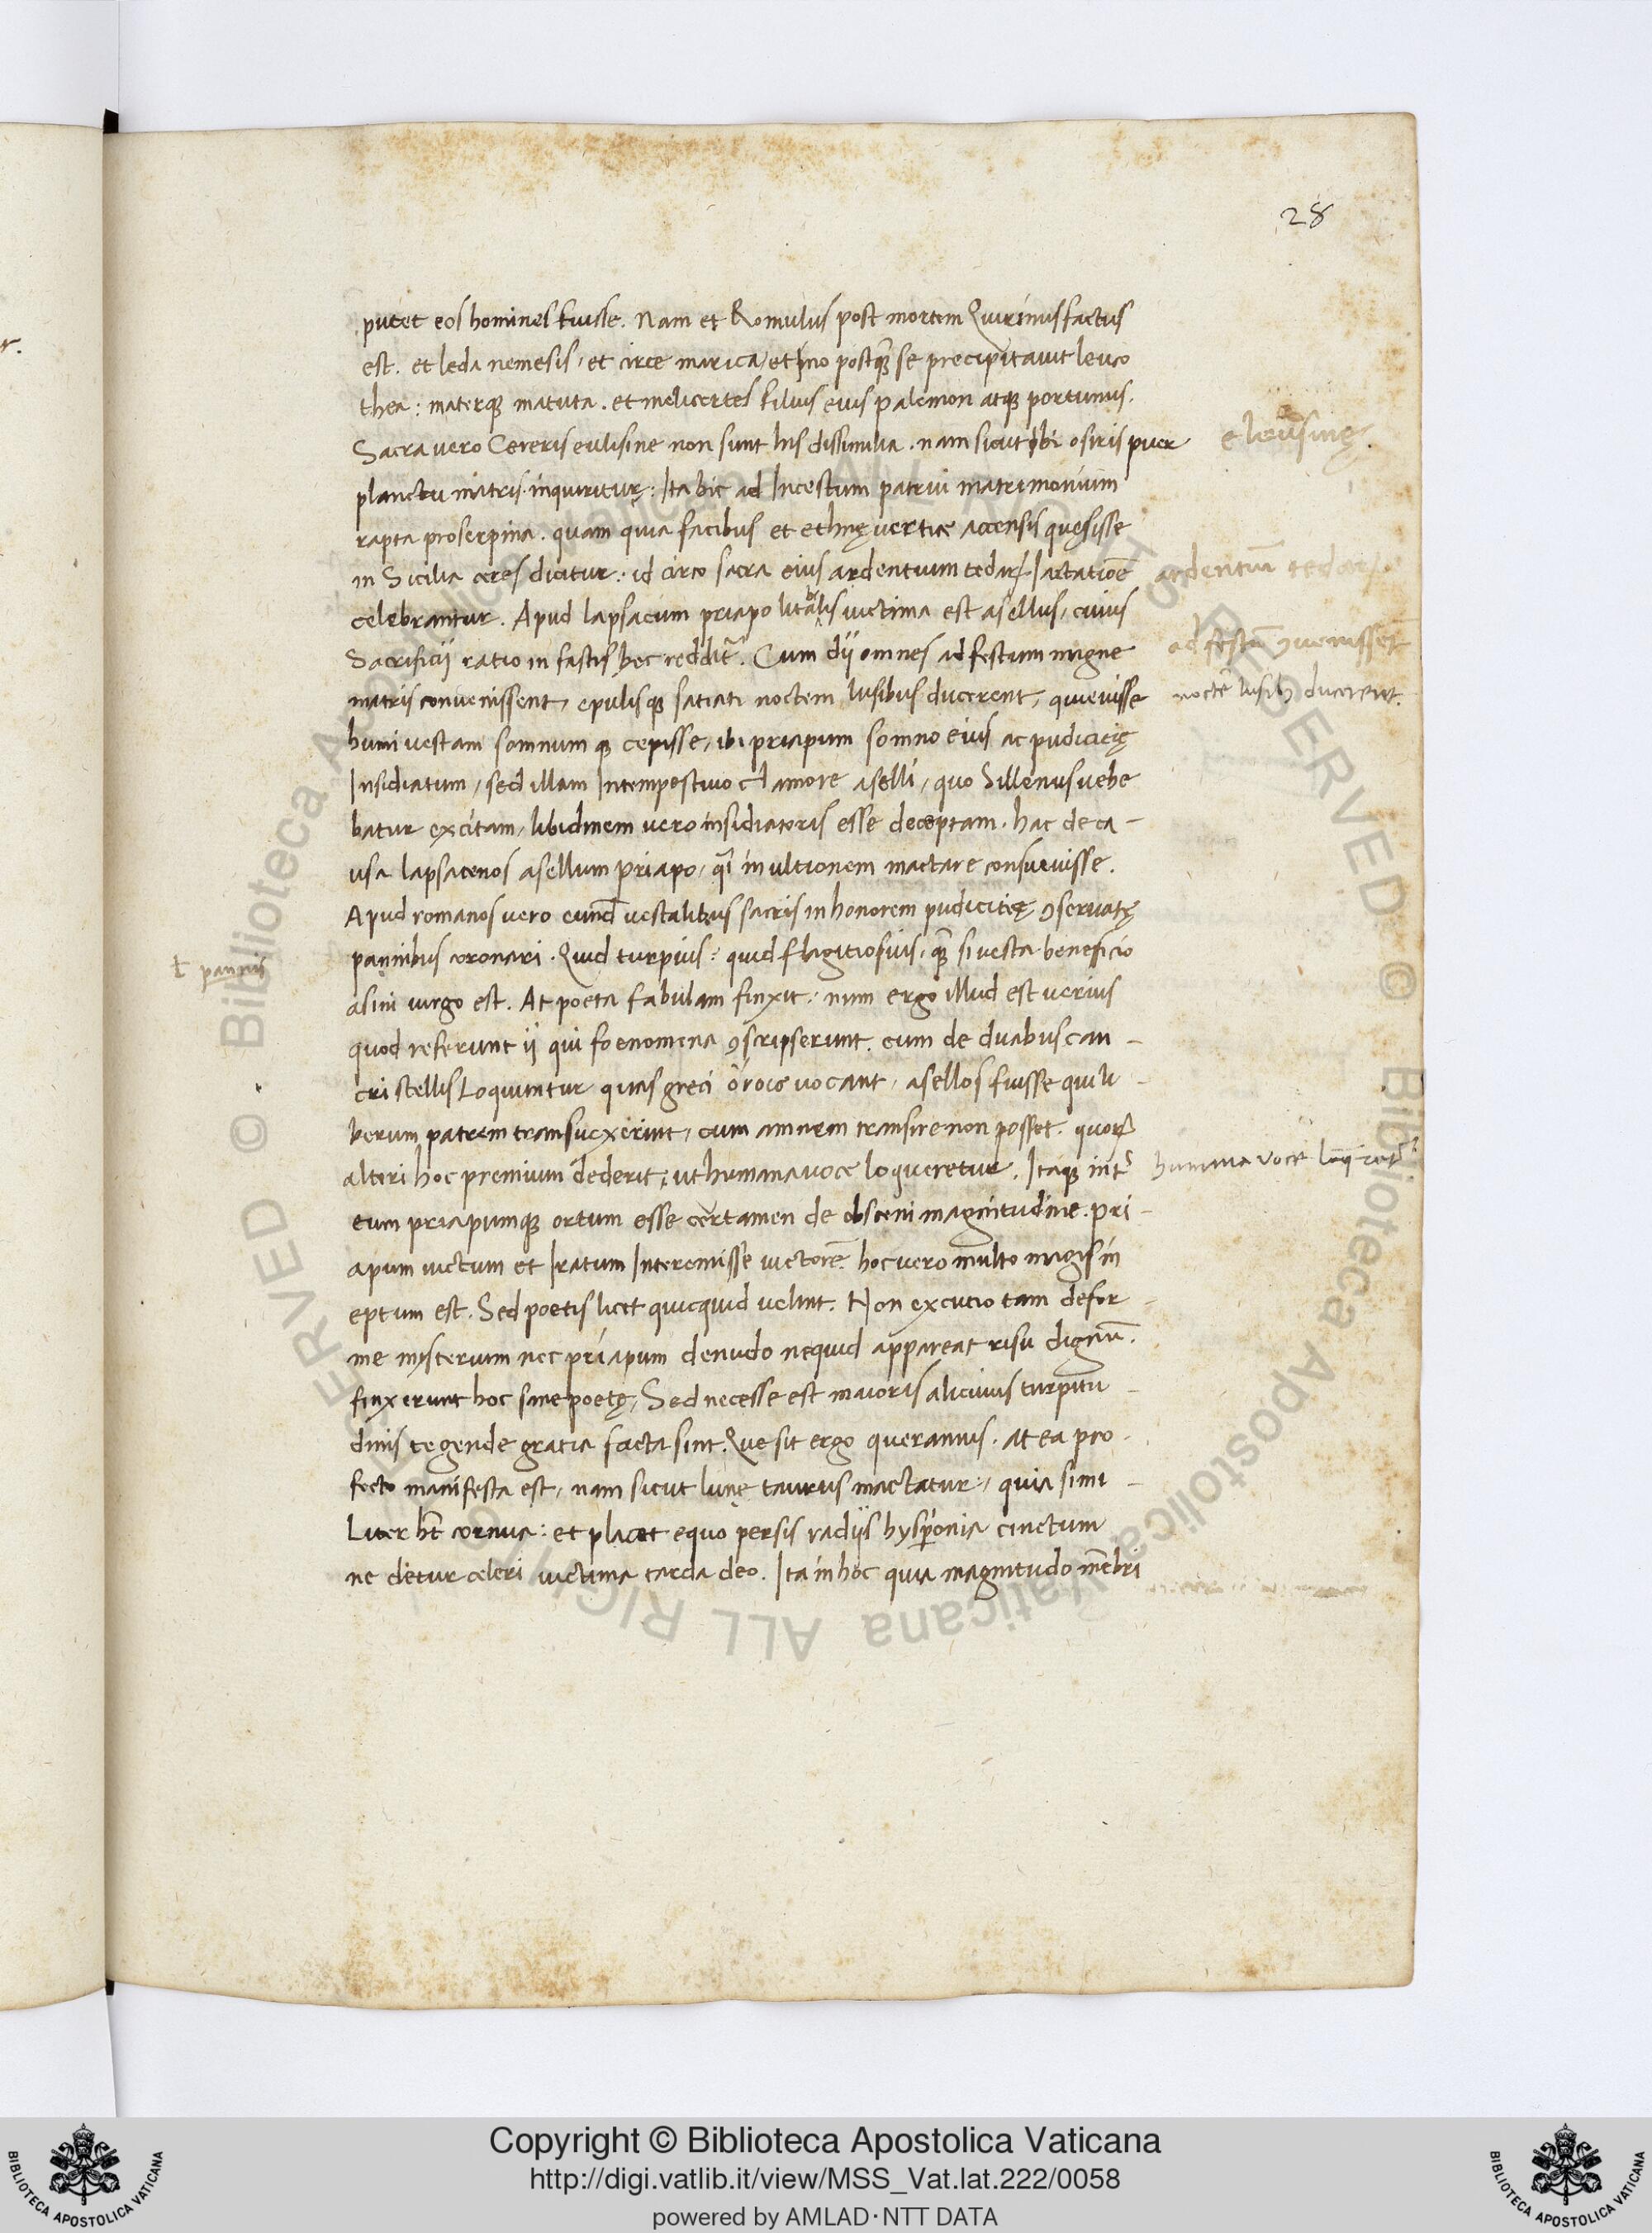 28
putet eos homines fuisse. Nam et Romulus post mortem Quirinus factus
est. et leda nemesis, et circe marica, et ino postq̄ se precipitavit leuco
thea: materq; matuta. et melicertes filius eius palemon atq; portunus.
Sacra vero Cereris eulisine non sunt his dissimilia. nam sicut ibi osiris puer
eleusinę.
planctu matris inquiritur: Ita hic ad Incestum patrui matrimonium
rapta proserpina. quam quia facibus et ethnę vertice accensis quesisse
in Sicilia ceres dicitur: id circo sacra eius ardentium tedarꝝ Iactatione᷑
ardentiū tedarꝝ
celebrantur. Apud lapsacum priapo litabilis victima est asellus, cuius
Sacrificij ratio in fastis hec reddit᷑. Cum dij omnes ad festum magne
ad festū ꝯvenissēt
matris convenissent, epulisq; satiati noctem lusibus ducerent, quievisse
noctē lusibꝫ ducerent.
humi vestam somnumq; cepisse, ibi priapum somno eius ac pudicicię
Insidiatum, sed illam Intempestivo clamore aselli, quo Sillenus vehe
batur excitam, libidinem vero insidiatoris esse deceptam. hac de ca-
usa lapsacenos asellum priapo, q̄i in ultionem mactare consuevisse.
Apud romanos vero eund̄ vestalibus sacris in honorem pudicitię ꝯservatę
panibus coronari. Quid turpius: quid flagitiosius, q̄ si vesta beneficio
ł pannis
asini virgo est. At poeta fabulam finxit: num ergo illud est verius
quod referunt ij qui foenomena ꝯscripserunt. cum de duabus can-
cri stellis Loquuntur quas greci ὄνους vocant, asellos fuisse qui li-
berum patrem transuexerint, cum amnem transire non posset. quorꝝ
alteri hoc premium dederit: ut humana voce loqueretur. Itaq; int᷑
humana voce loqueret᷑
eum priapumq; ortum esse certamen de obsceni magnitudine. pri-
apum victum et Iratum Interemisse victorē. hoc vero multo magis in
eptum est. Sed poetis licet quicquid velint. Non excutio tam defor-
me mysterium nec priapum denudo nequid appareat risu dignū.
finxerunt hoc sane poetę, Sed necesse est maioris alicuius turpitu-
dinis tegende gratia facta sint. Que sit ergo queramus. at ea pro-
fecto manifesta est, nam sicut lunę taurus mactatur, quia simi-
Liter hn̄t cornua: et placat equo persis radijs hysperionia cinctum
ne detur celeri victima tarda deo. Ita in hoc quia magnitudo mēbri
Copyright © Biblioteca Apostolica Vaticana
http://digi.vatlib.it/view/MSS_Vat.lat.222/0058
powered by AMLAD·NTT DATA
BIBLIOTECA APOSTOLICA VATICANA
BIBLIOTECA APOSTOLICA VATICANA